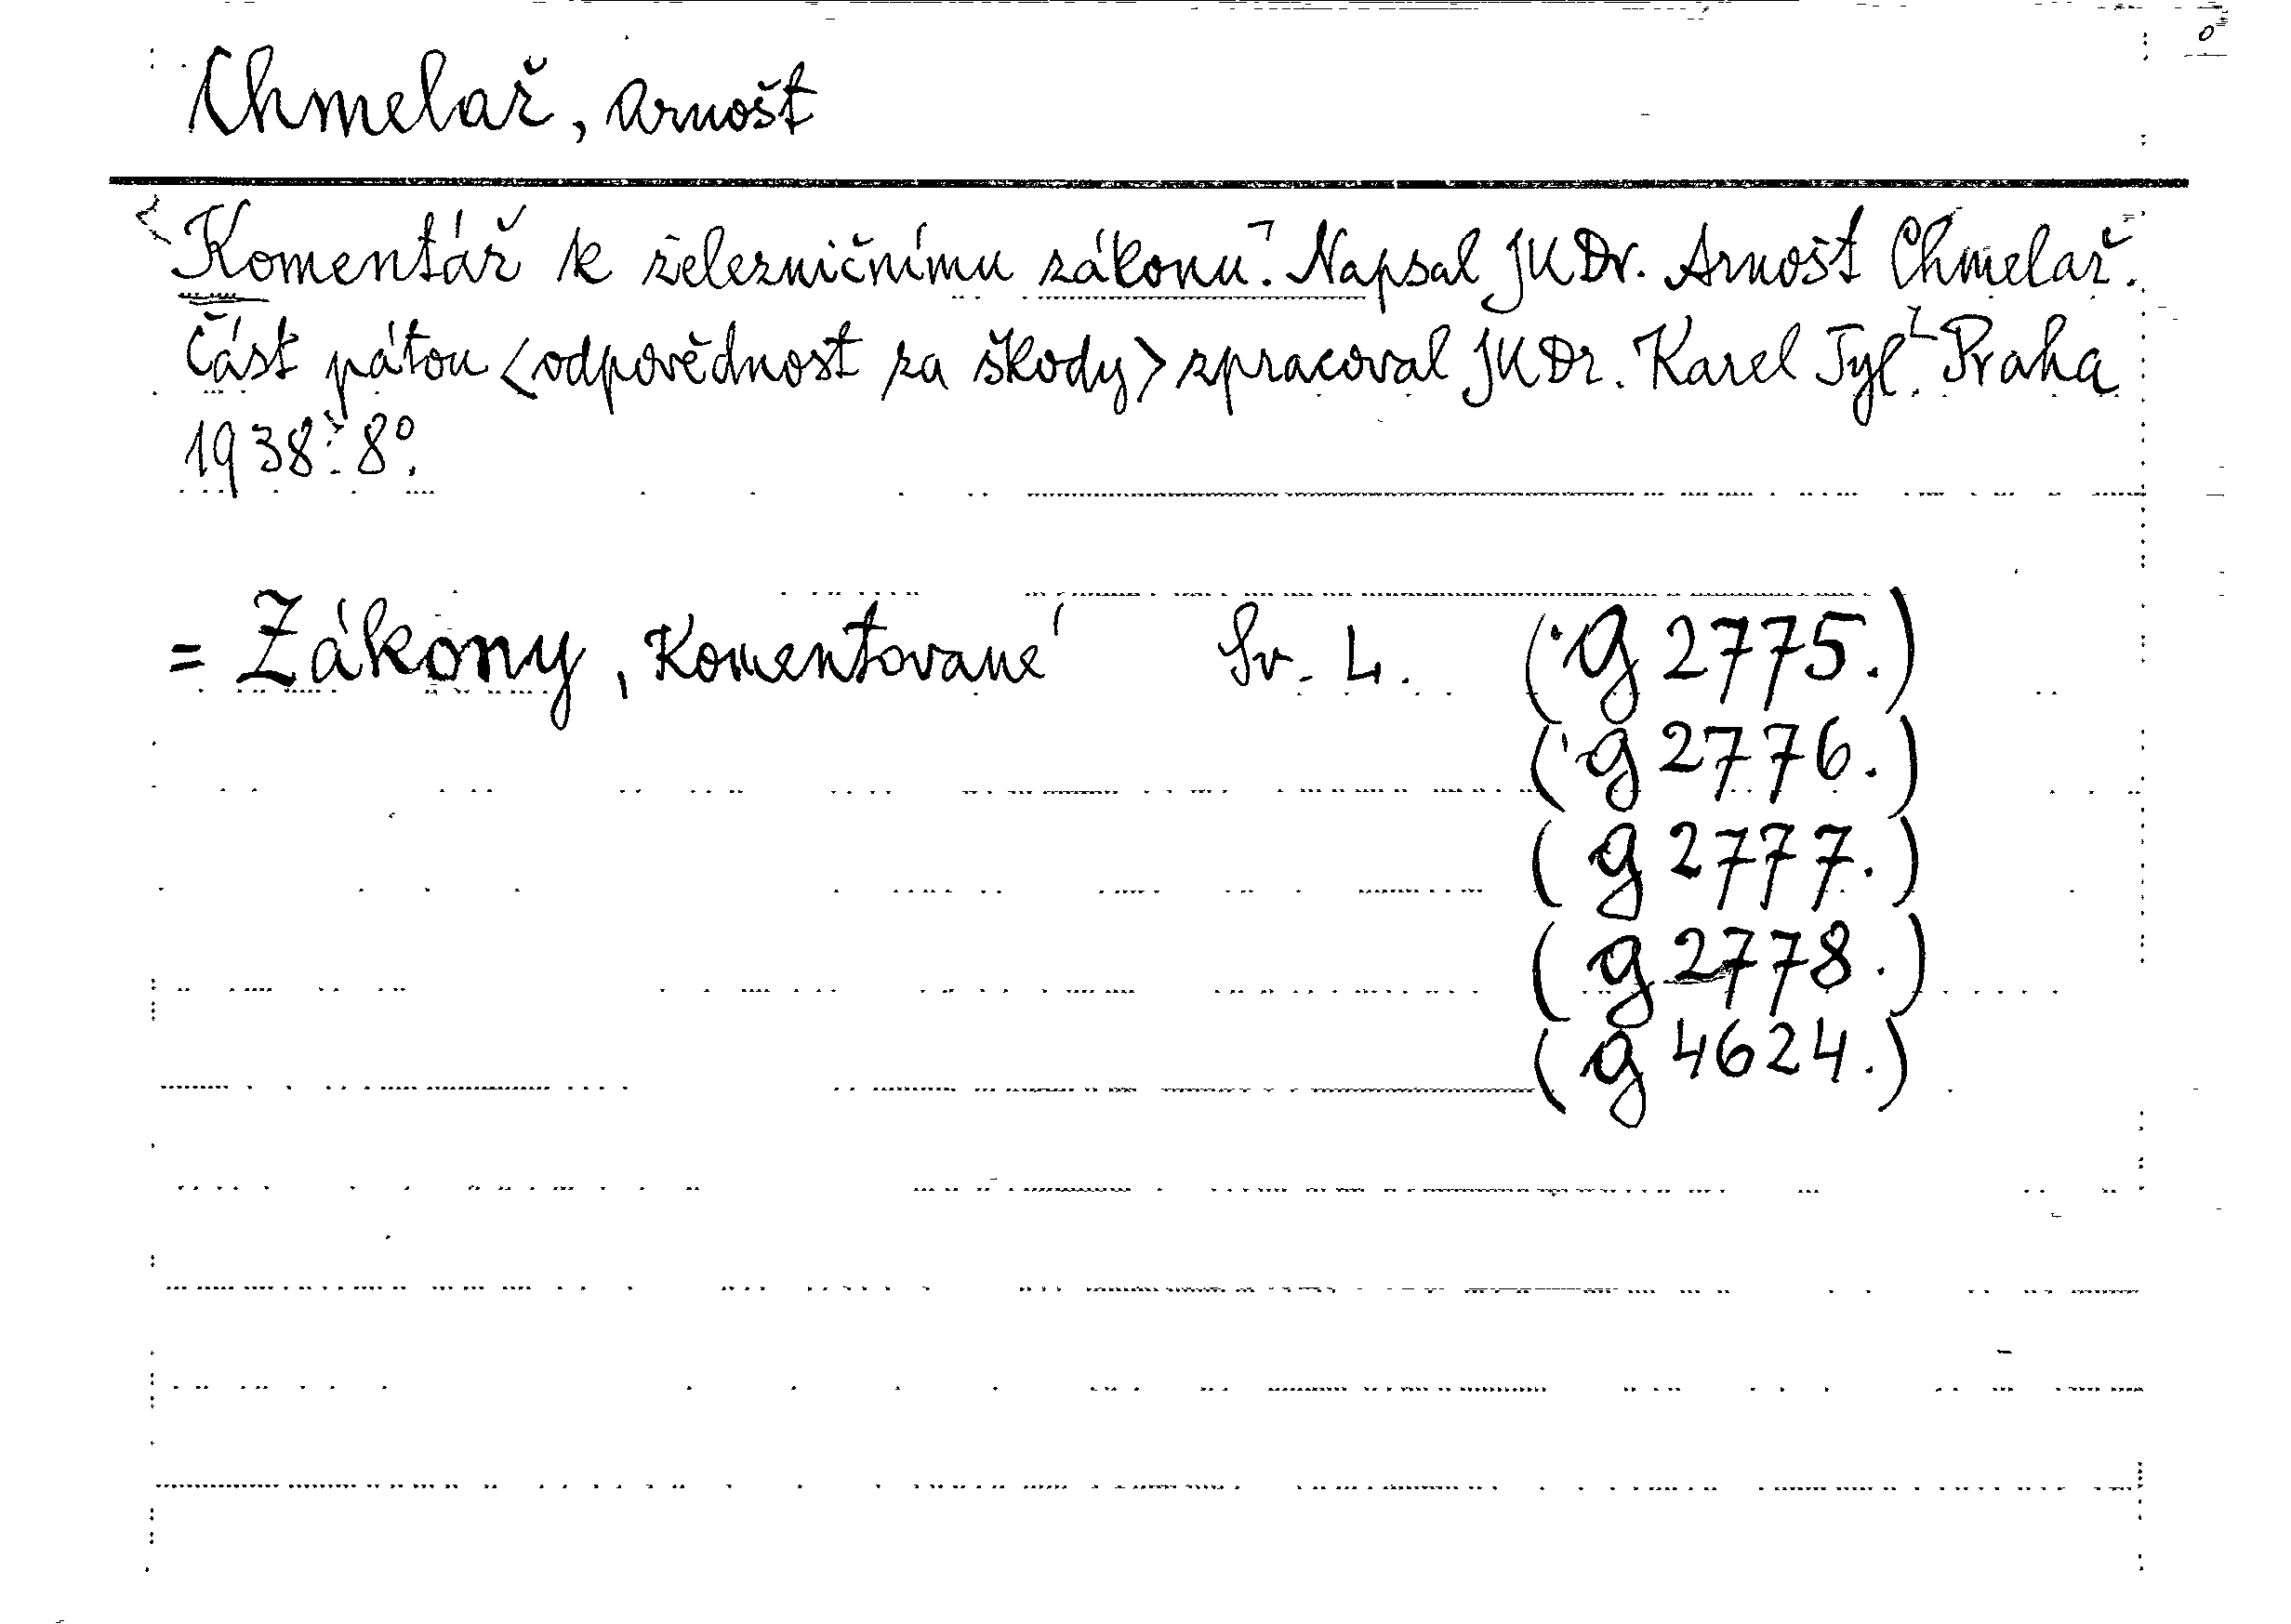 Chmelař, Arnošt
Komentář k železničnímu zákonu. Napsal JUDr. Arnošt Chmelař.
Část pátou <odpovědnost za škody> zpracoval JUDr. Karel Tyl. Praha
1938. 8°.
= Zákony, Komentované Sv. L. (G 2775.)
(g 2776.)
(g 2777.)
(g 2778.)
(g 4624.)